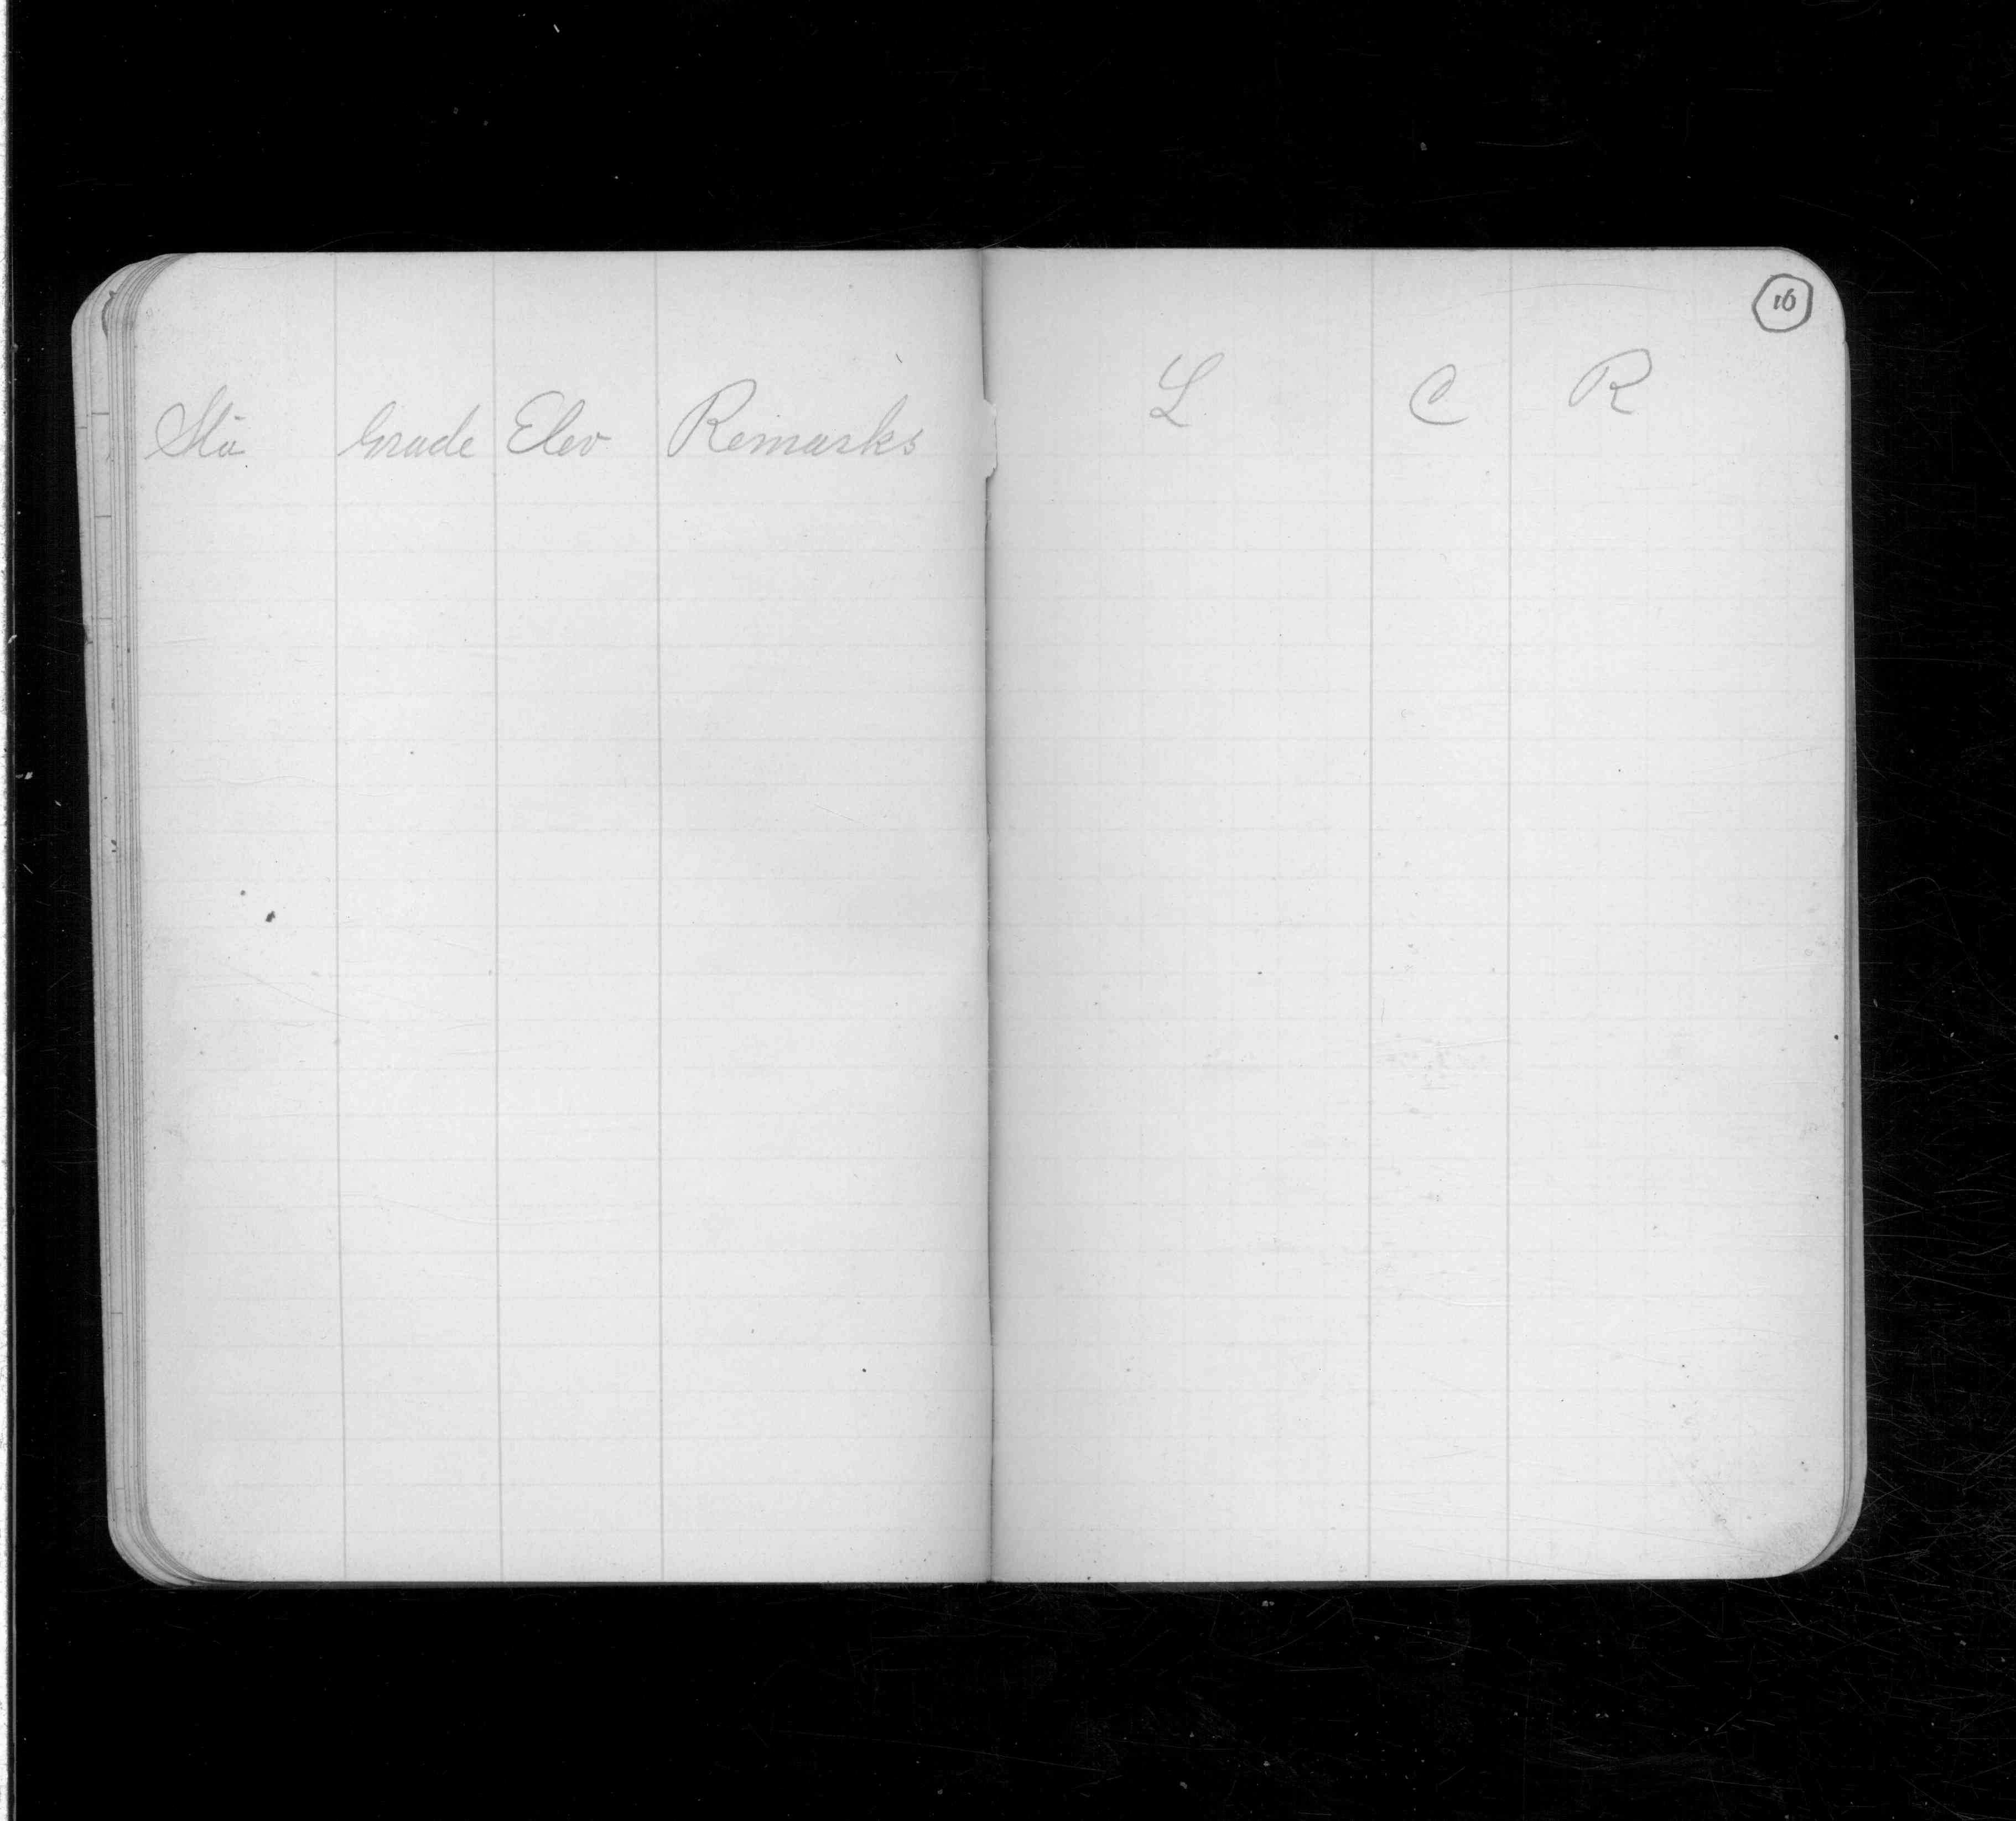 16
Sta Grade Elev Remarks L C R